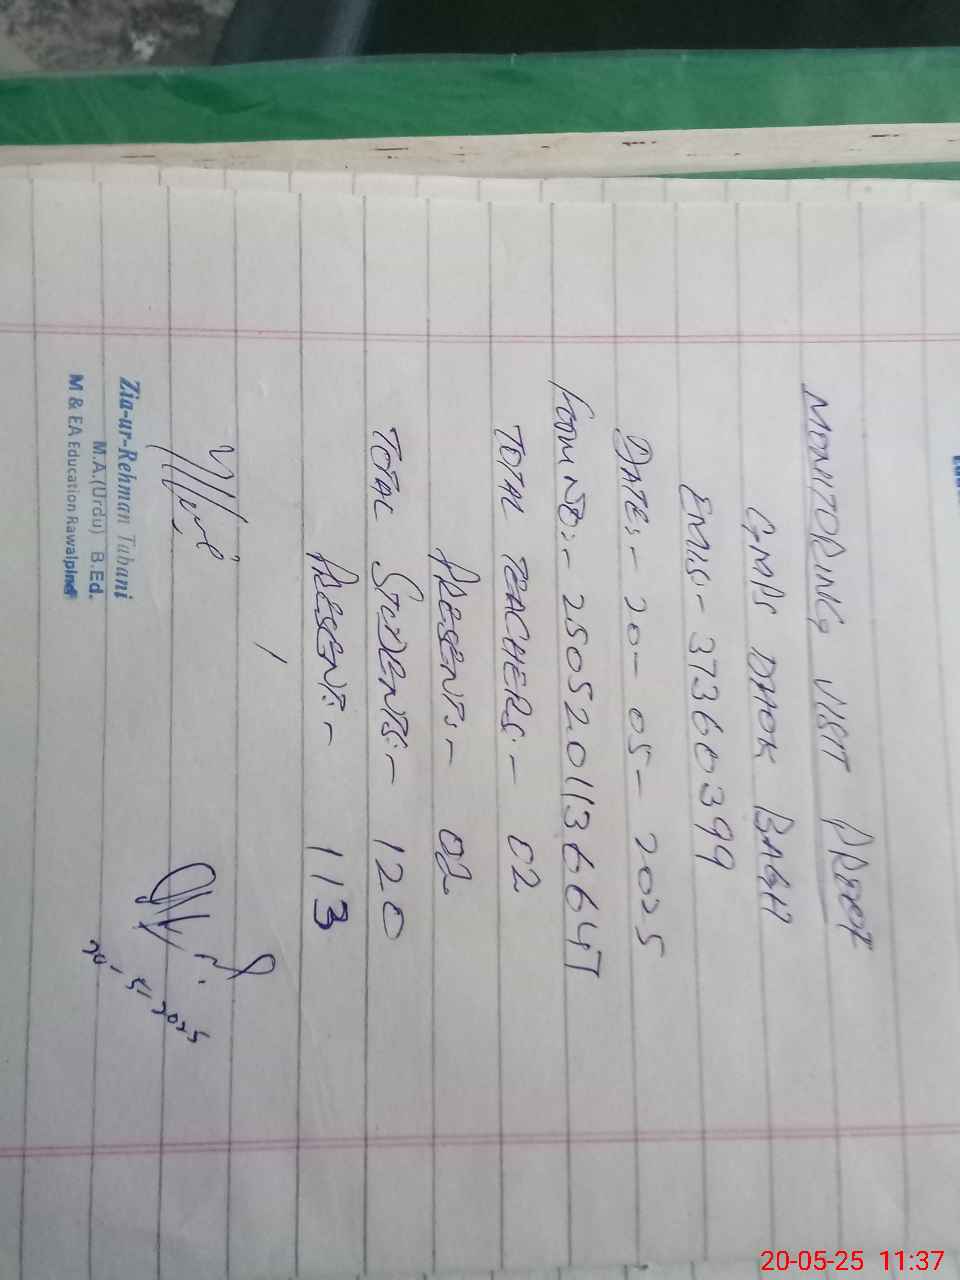 MONITORING VISIT PROOF
GMPS DHOK BAGH
EMIS:- 37360399
DATE:- 20-05-2025
FORM NO:- 25052011366647
TOTAL TEACHERS:- 02
PRESENT:- 02
TOTAL STUDENTS:- 120
PRESENT:- 113
20-5-2025
Zia-ur-Rehman Tabani
M.A.(Urdu) B.Ed.
M & EA Education Rawalpindi
20-05-25 11:37